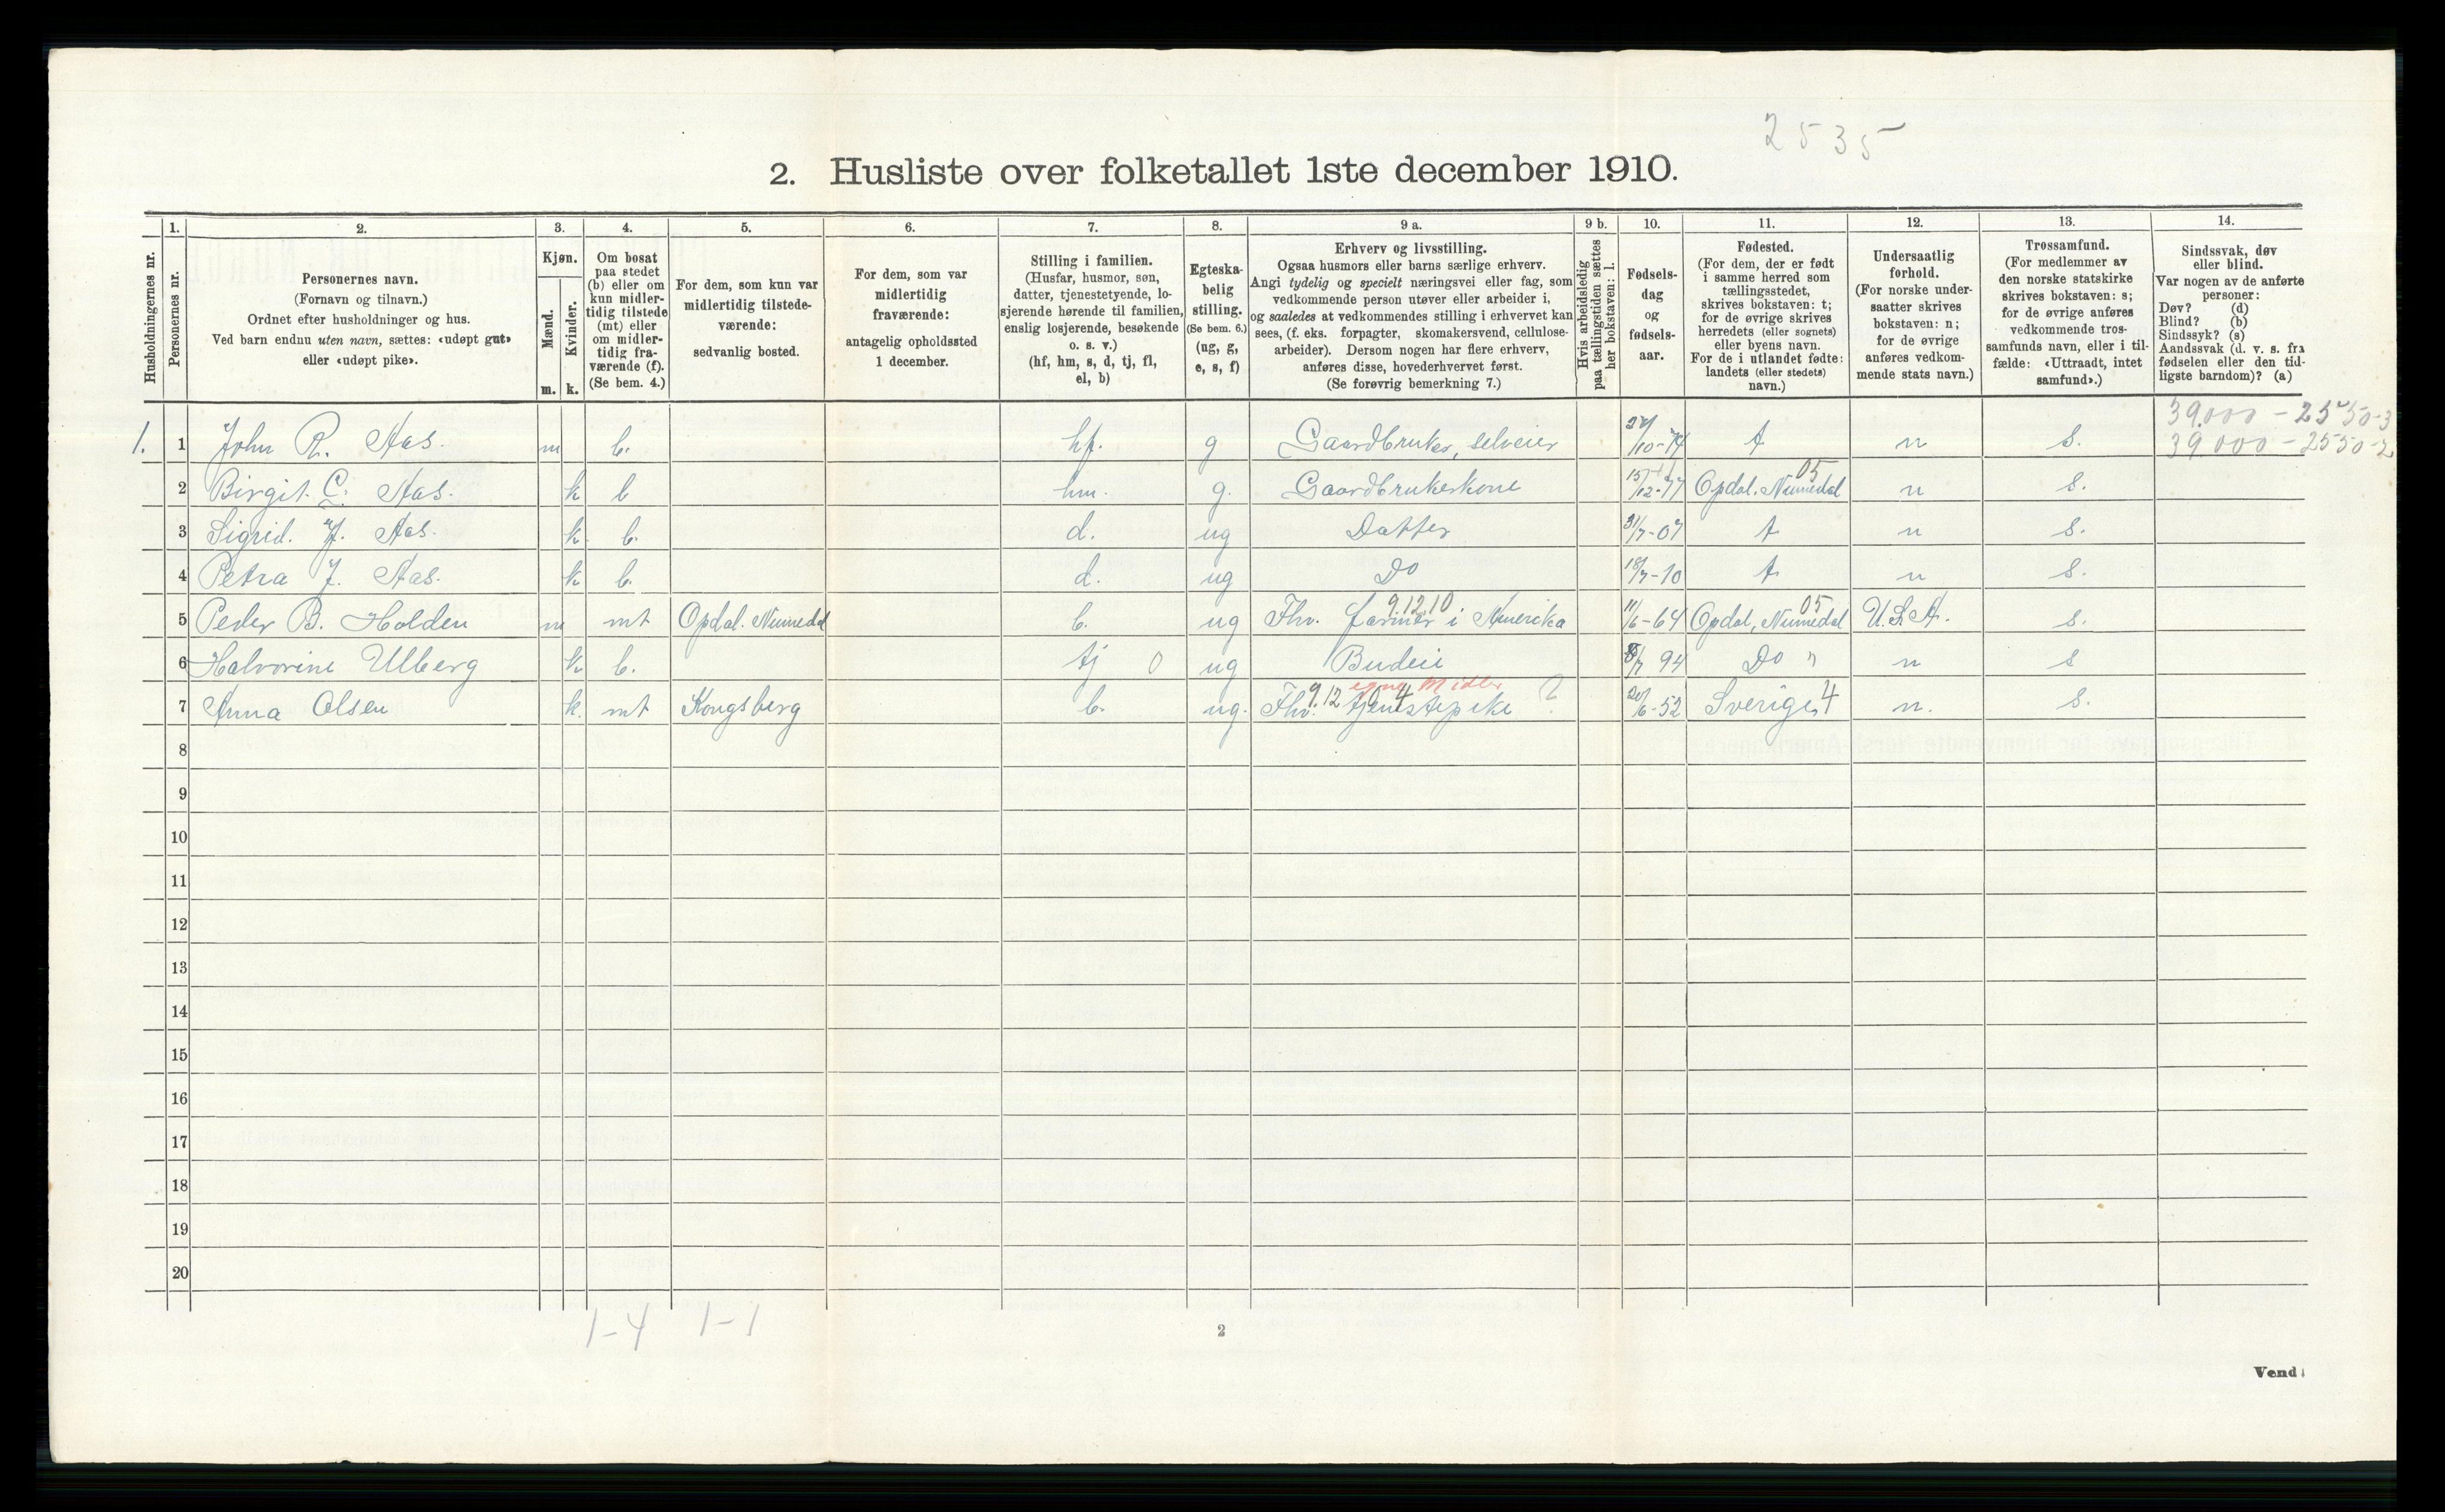 2535
2. Husliste over folketallet 1ste december 1910.
Husholdningernes nr.
1.
Personernes nr.
2.
Personernes navn.
(Fornavn og tilnavn.)
Ordnet efter husholdninger og hus.
Ved barn endnu uten navn, sættes: «udøpt gut»
eller «udøpt pike».
3.
Kjøn.
Mænd.
m.
Kvinder.
k.
4.
Om bosat
paa stedet
(b) eller om
kun midler-
tidig tilstede
(mt) eller
om midler-
tidig fra-
værende (f).
(Se bem. 4.)
5.
For dem, som kun var
midlertidig tilstede-
værende:
sedvanlig bosted.
6.
For dem, som var
midlertidig
fraværende:
antagelig opholdssted
1 december.
7.
Stilling i familien.
(Husfar, husmor, søn,
datter, tjenestetyende, lo-
sjerende hørende til familien,
enslig losjerende, besøkende
o. s. v.)
(hf, hm, s, d, tj, fl,
el, b)
8.
Egteska-
belig
stilling.
(Se bem. 6.)
(ug, g,
e, s, f)
9 a.
Erhverv og livsstilling.
Ogsaa husmors eller barns særlige erhverv.
Angi tydelig og specielt næringsvei eller fag, som
vedkommende person utøver eller arbeider i,
og saaledes at vedkommendes stilling i erhvervet kan
sees, (f. eks. forpagter, skomakersvend, cellulose-
arbeider). Dersom nogen har flere erhverv,
anføres disse, hovederhvervet først.
(Se forøvrig bemerkning 7.)
9 b.
Hvis arbeidsledig
paa tællingstiden sættes
her bokstaven: l.
10.
Fødsels-
dag
og
fødsels-
aar.
11.
Fødested.
(For dem, der er født
i samme herred som
tællingsstedet,
skrives bokstaven: t;
for de øvrige skrives
herredets (eller sognets)
eller byens navn.
For de i utlandet fødte:
landets (eller stedets)
navn.)
12.
Undersaatlig
forhold.
(For norske under-
saatter skrives
bokstaven: n;
for de øvrige
anføres vedkom-
mende stats navn.)
13.
Trossamfund.
(For medlemmer av
den norske statskirke
skrives bokstaven: s;
for de øvrige anføres
vedkommende tros-
samfunds navn, eller i til-
fælde: «Uttraadt, intet
samfund».)
14.
Sindssvak, døv
eller blind.
Var nogen av de anførte
personer:
Døv? (d)
Blind? (b)
Sindssyk? (s)
Aandssvak (d. v. s. fra
fødselen eller den tid-
ligste barndom)? (a)
39.000 - 2550-3
1. 1 John R. Aas. m b. hf. g Gaardbruker, selveier /10-74 t n s. 39.000 - 2550-2
2 Birgit. C. Aas. k b hm. g. Gaardbrukerkone 15/12-77 Opdal. Numedal 05 n s.
3 Sigrid. J. Aas. k. b. d. ug Datter 31/7-07 t n s.
4 Petra J. Aas. k b. d. ug Do 18/7-10 t n s.
5 Peder B. Holden m mt Opdal. Numedal b. ug Fhv. farmer i Amerika 9.12.10 11/6-64 Opdal, Numedal 05 U.S.A. s.
6 Halvorine Ulberg k. b. tj 0 ug Budeie /7 94 Do " n s
egne Midler
7 Anna Olsen k. mt Kongsberg b. ug. Fhv. tjenestepike 9.12 4 ? 20/6-52 Sverige 4 n. s.
8
9
10
11
12
13
14
15
16
17
18
19
20
1-4 1-1
2
Vend!